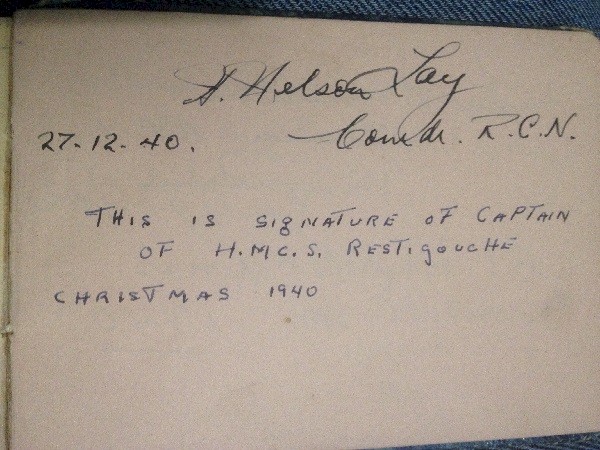 H. Nelson Lay
27-12-40. Comdr. R.C.N.
THIS IS SIGNATURE OF CAPTAIN
OF H.M.C.S. RESTIGOUCHE
CHRISTMAS 1940